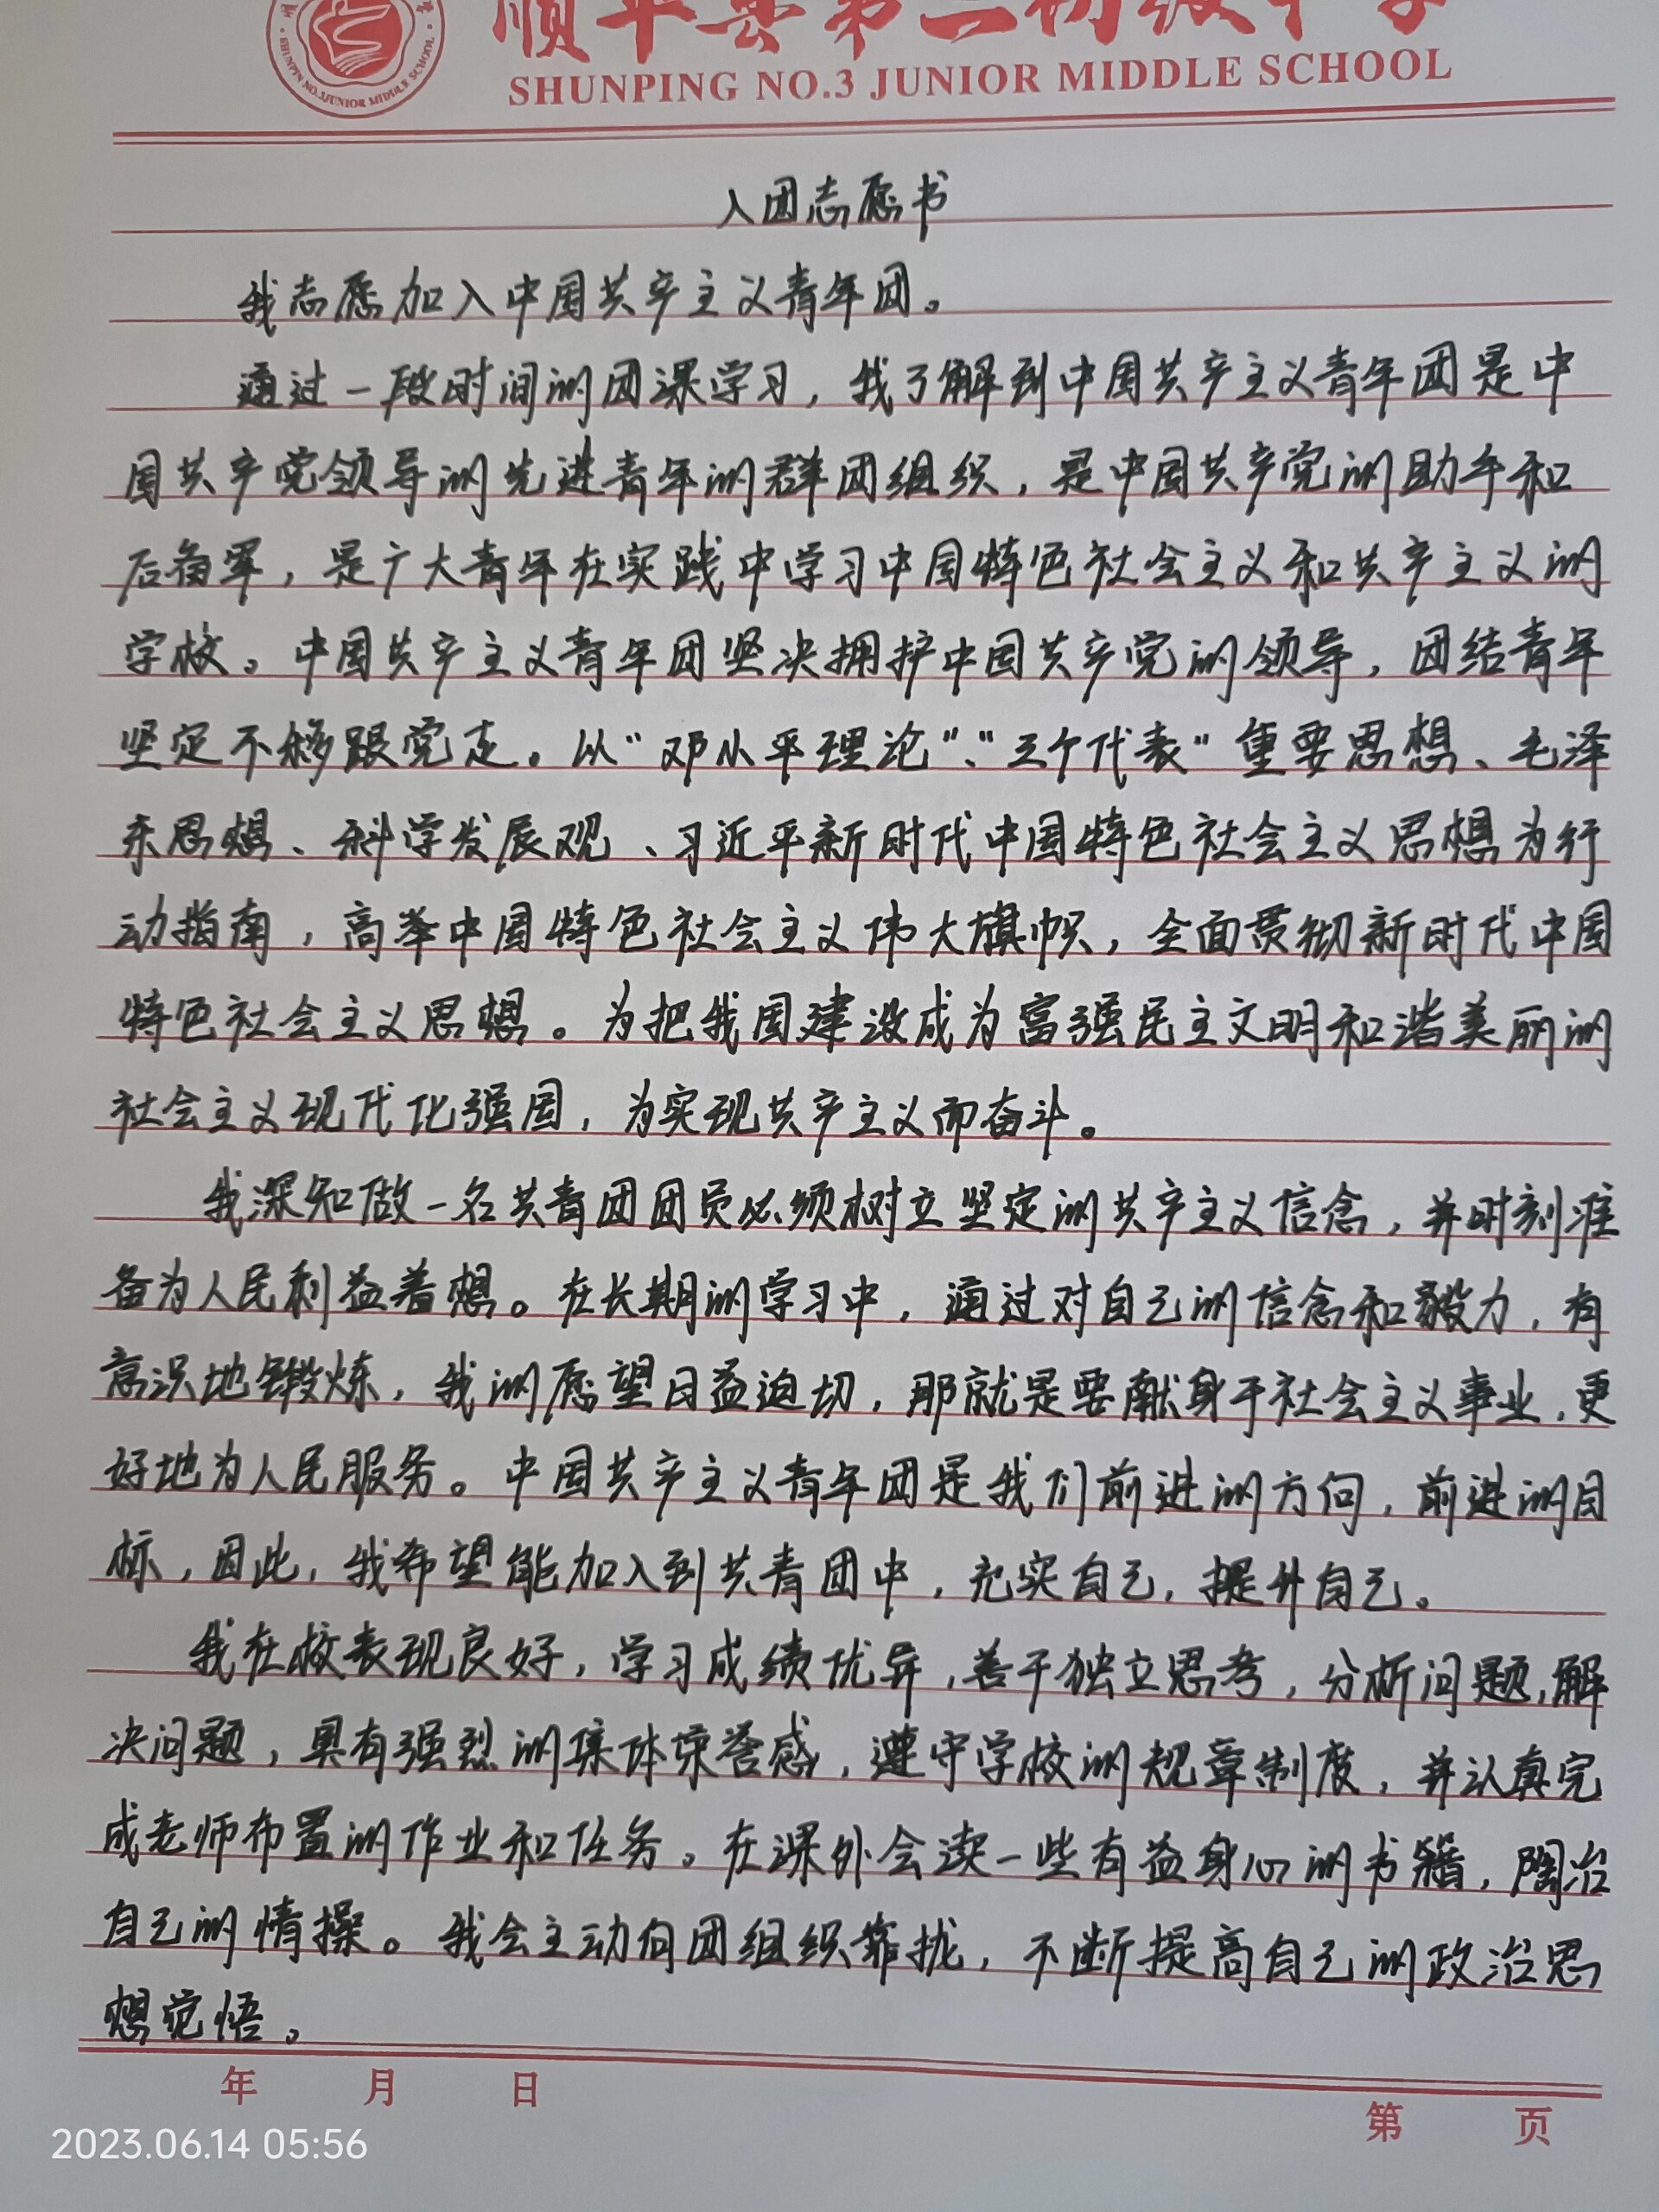 顺平县第三初级中学
SHUNPING NO.3 JUNIOR MIDDLE SCHOOL
SHUNPING NO.3 JUNIOR MIDDLE SCHOOL
入团志愿书
我志愿加入中国共产主义青年团。
通过一段时间的团课学习，我了解到中国共产主义青年团是中
国共产党领导的先进青年的群团组织，是中国共产党的助手和
后备军，是广大青年在实践中学习中国特色社会主义和共产主义的
学校。中国共产主义青年团坚决拥护中国共产党的领导，团结青年
坚定不移跟党走。以“邓小平理论”、“三个代表”重要思想、毛泽
东思想、科学发展观、习近平新时代中国特色社会主义思想为行
动指南，高举中国特色社会主义伟大旗帜，全面贯彻新时代中国
特色社会主义思想。为把我国建设成为富强民主文明和谐美丽的
社会主义现代化强国，为实现共产主义而奋斗。
我深知做一名共青团团员必须树立坚定的共产主义信念，并时刻准
备为人民利益着想。在长期的学习中，通过对自己的信念和毅力，有
意识地锻炼，我的愿望日益迫切，那就是要献身于社会主义事业，更
好地为人民服务。中国共产主义青年团是我们前进的方向，前进的目
标，因此，我希望能加入到共青团中，充实自己，提升自己。
我在校表现良好，学习成绩优异，善于独立思考，分析问题，解
决问题，具有强烈的集体荣誉感，遵守学校的规章制度，并认真完
成老师布置的作业和任务。在课外会读一些有益身心的书籍，陶冶
自己的情操。我会主动向团组织靠拢，不断提高自己的政治思
想觉悟。
年 月 日
第 页
2023.06.14 05:56